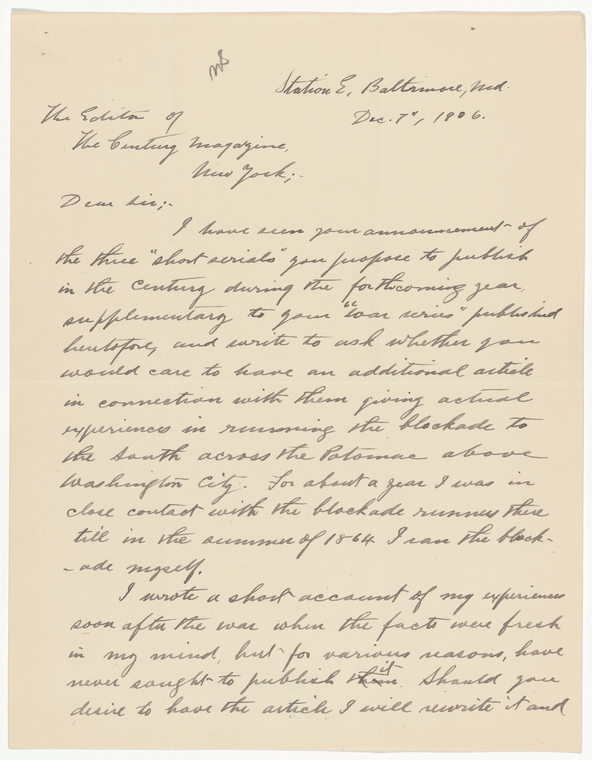 Station E, Baltimore, Md.
Dec. 7", 1906.
The Editor of
The Century Magazine,
New York;-
Dear Sir;-
I have seen your announcement of
the three "short serials" you propose to publish
in the Century during the forthcoming year,
supplementary to your "war series" published
heretofore, and write to ask whether you
would care to have an additional article
in connection with them giving actual
experiences in running the blockade to
the South across the Potomac above
Washington City. For about a year I was in
close contact with the blockade runners there
till in the summer of 1864 I ran the block-
-ade myself.
I wrote a short account of my experiences
soon after the war when the facts were fresh
in my mind, but for various reasons, have
never sought to publish it. Should you
desire to have the article I will rewrite it and